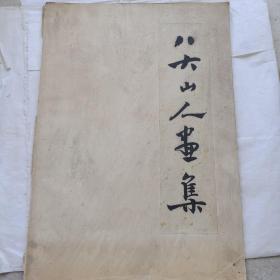 八大山人画集